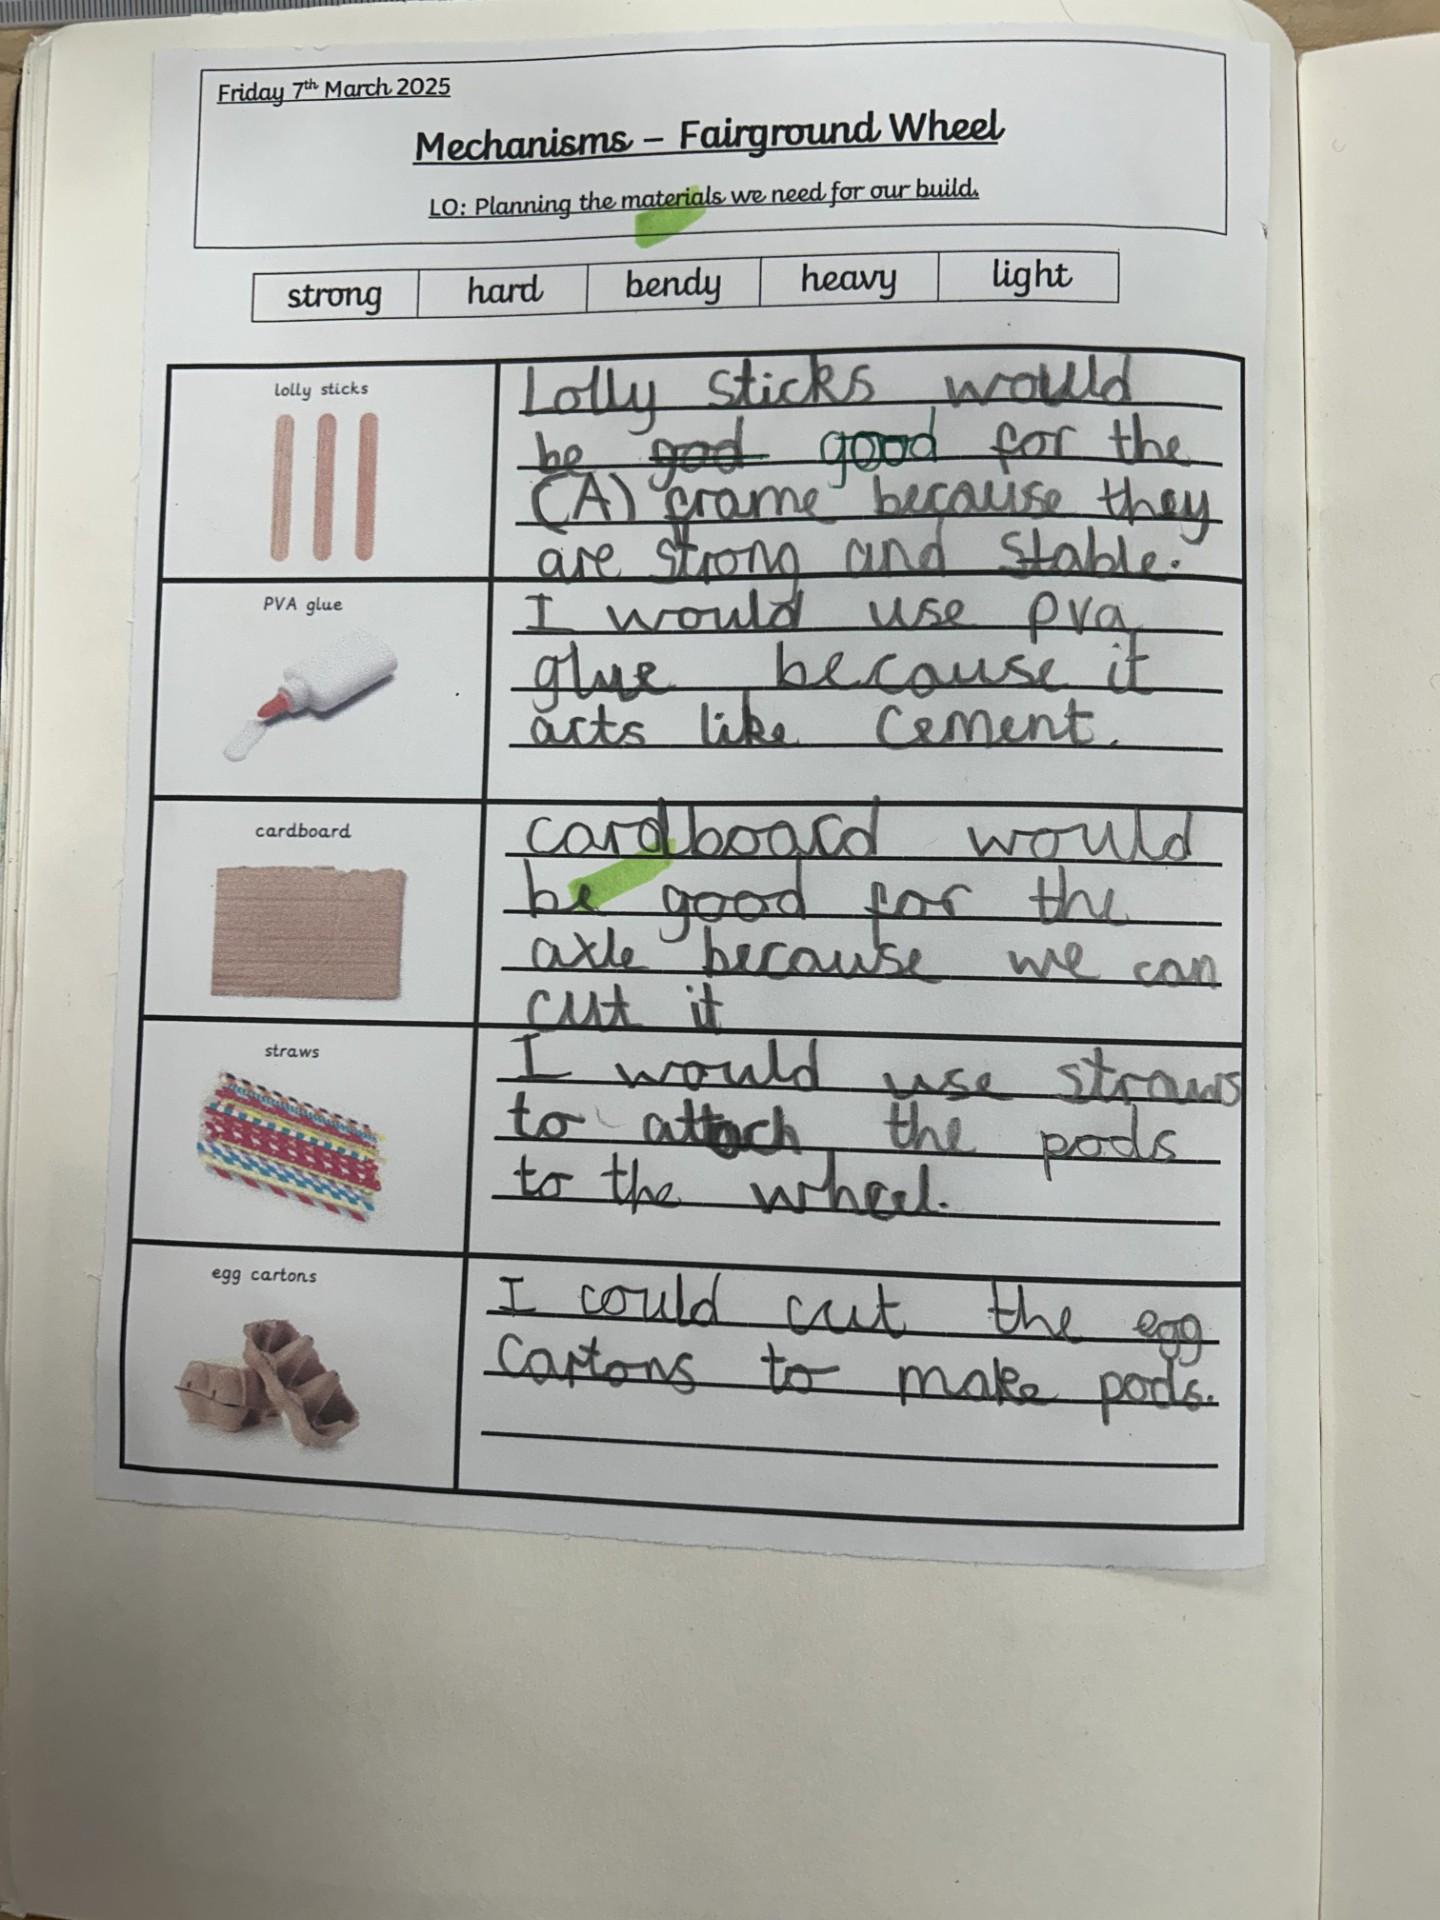 Friday 7th March 2025
Mechanisms – Fairground Wheel
LO: Planning the materials we need for our build.
strong hard bendy heavy light
lolly sticks
Lolly sticks would
be god good for the
(A) frame because they
are strong and stable.
PVA glue
I would use pva
glue because it
acts like cement.
cardboard
cardboard would
be good for the
axle because we can
cut it
straws
I would use straws
to attach the pods
to the wheel.
egg cartons
I could cut the egg
cartons to make pods.